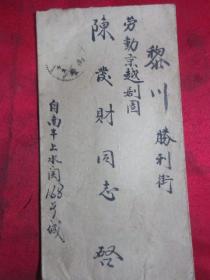 黎川 勝利街
劳動京越剧团
陳發財同志 啓
自南丰上水関168号城